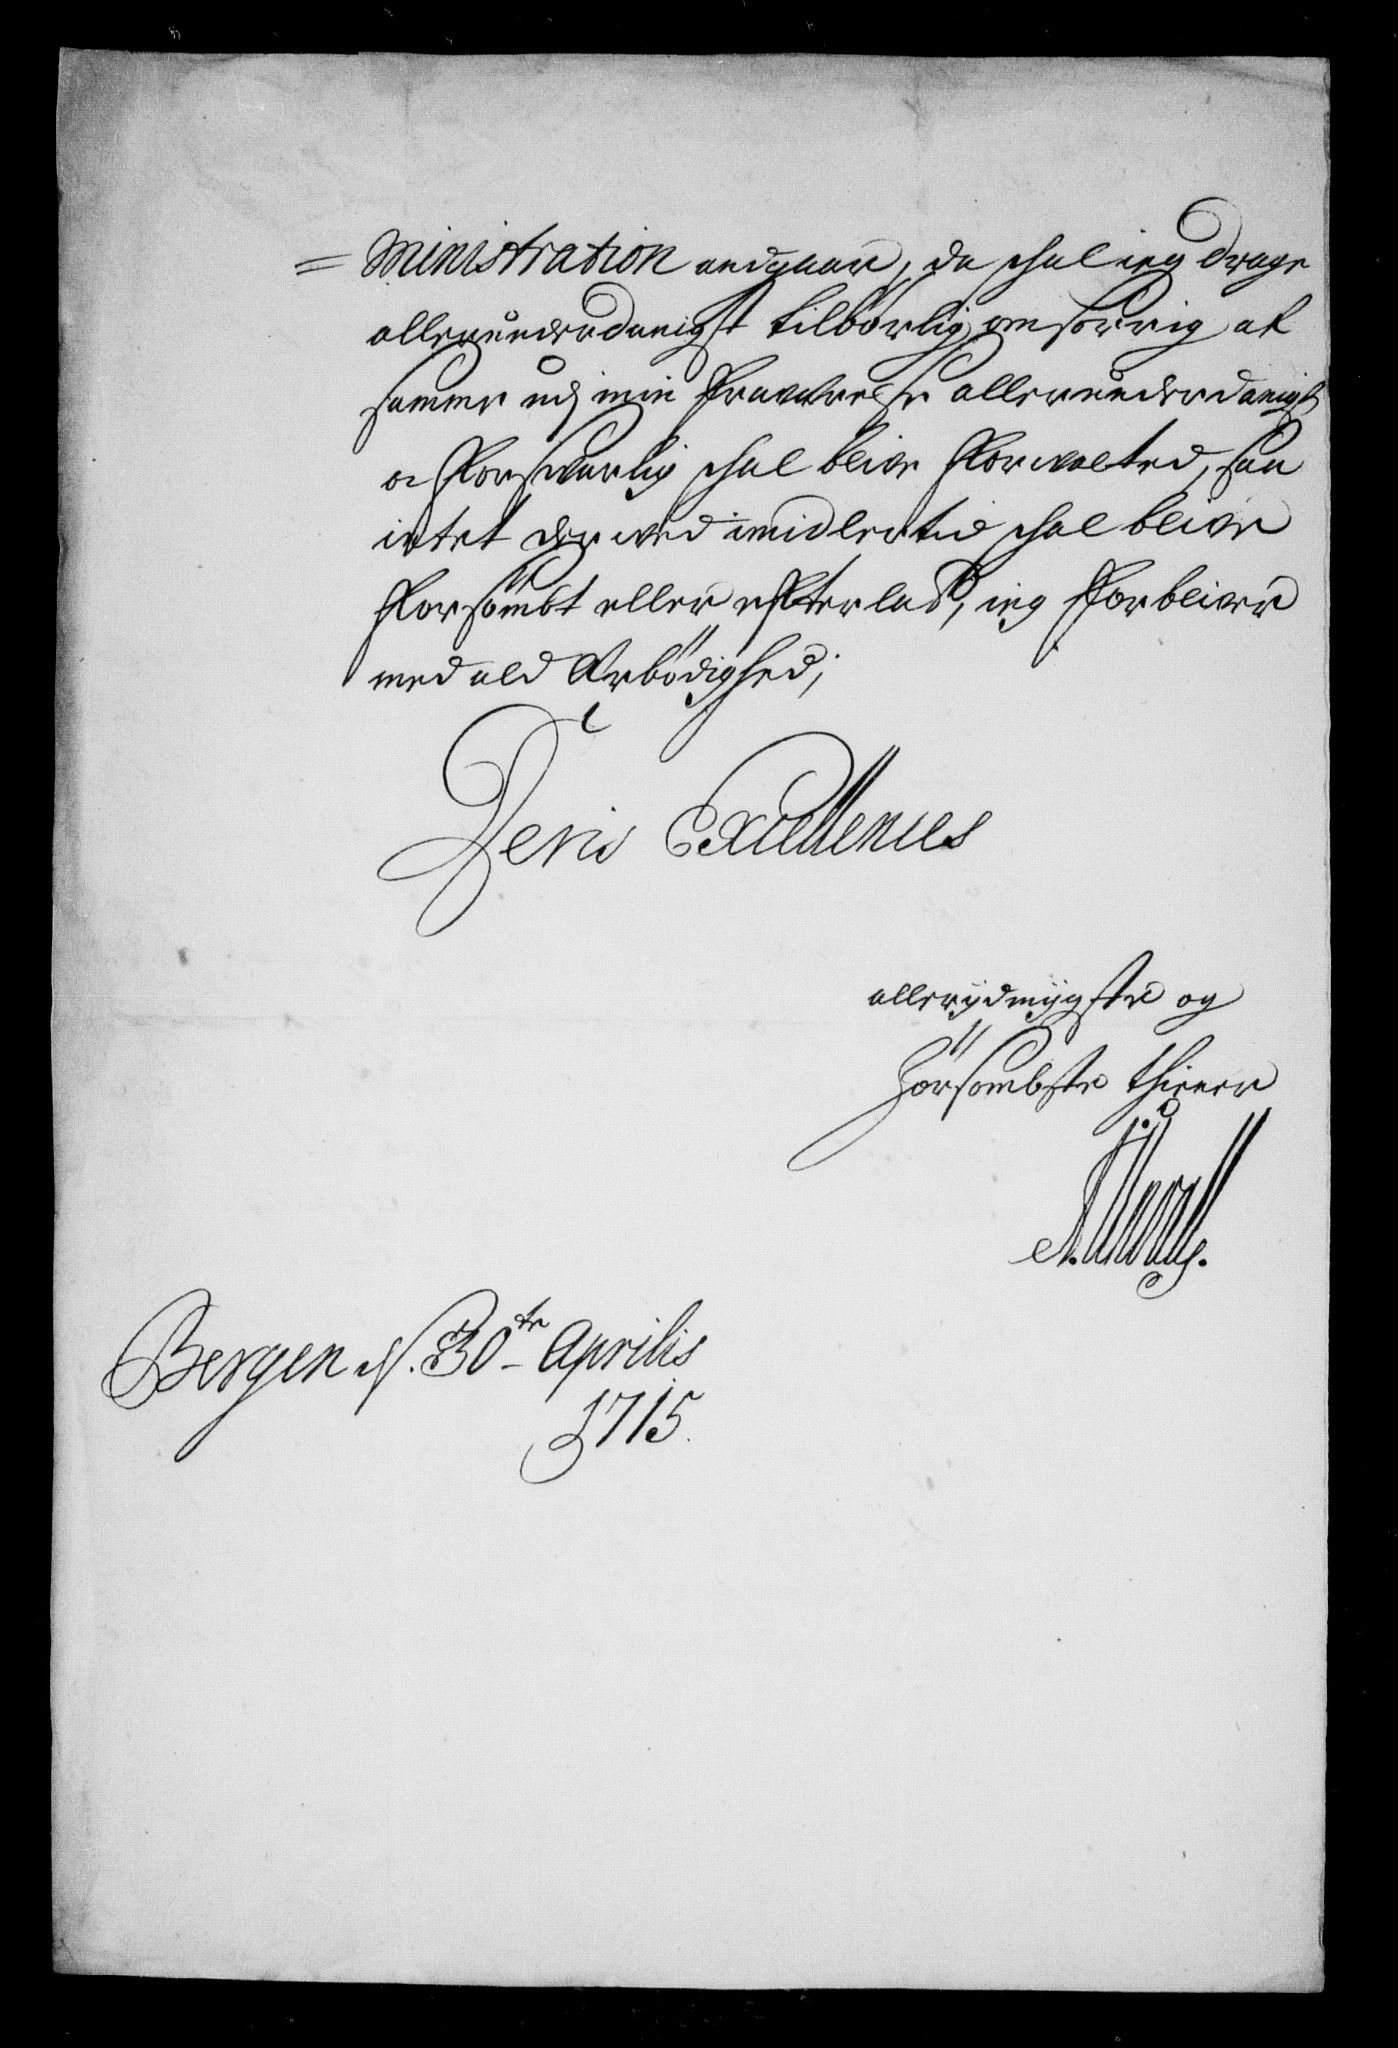 = ministration andgaar, da schal ieg drage
allerunderdanigst tilbørlig omsorrig at
samme udj min fraværelse allerunderdanigst
oc forsvarlig schal blive forvalted, saa
intet derved imidlertid schal blive
forsømbt eller efterlat, ieg forbliver
med ald Ærbödighed;
Deris Excellences
allerydmygste og
hörsombste thiener
Bergen d. 30te Aprilis
1715.